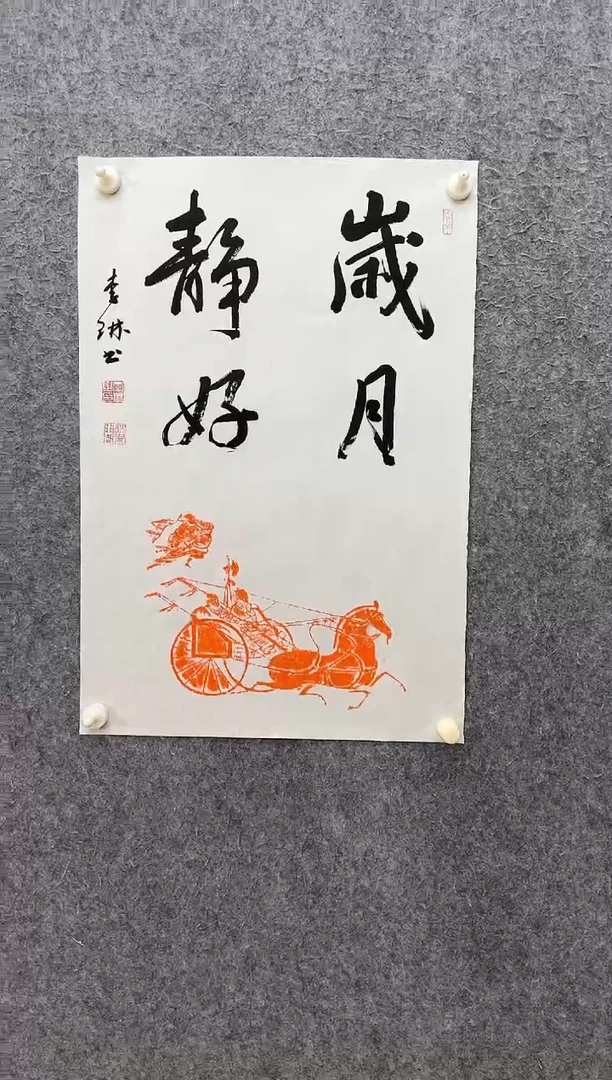 歲月
靜好
李琳书